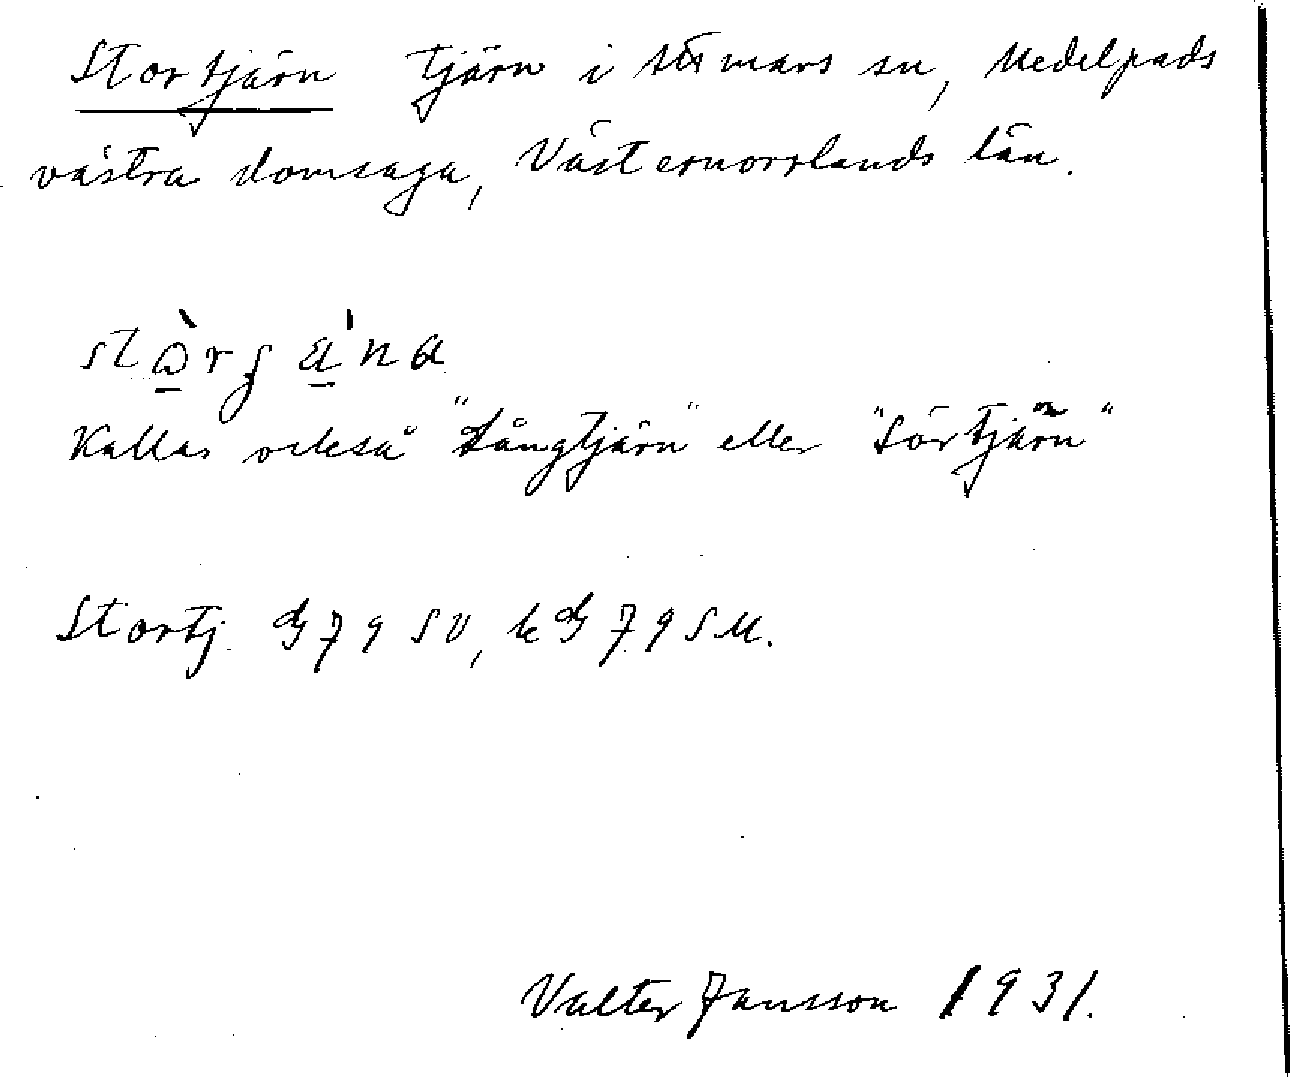 Stortjärn Tjärn i Attmars sn, Medelpads
västra domsaga, Västernorrlands län.
Kallas också "Långtjärn" eller "Sörtjärn"
Stortj. G79 SV, kG79SM.
Valter Jansson 1931.